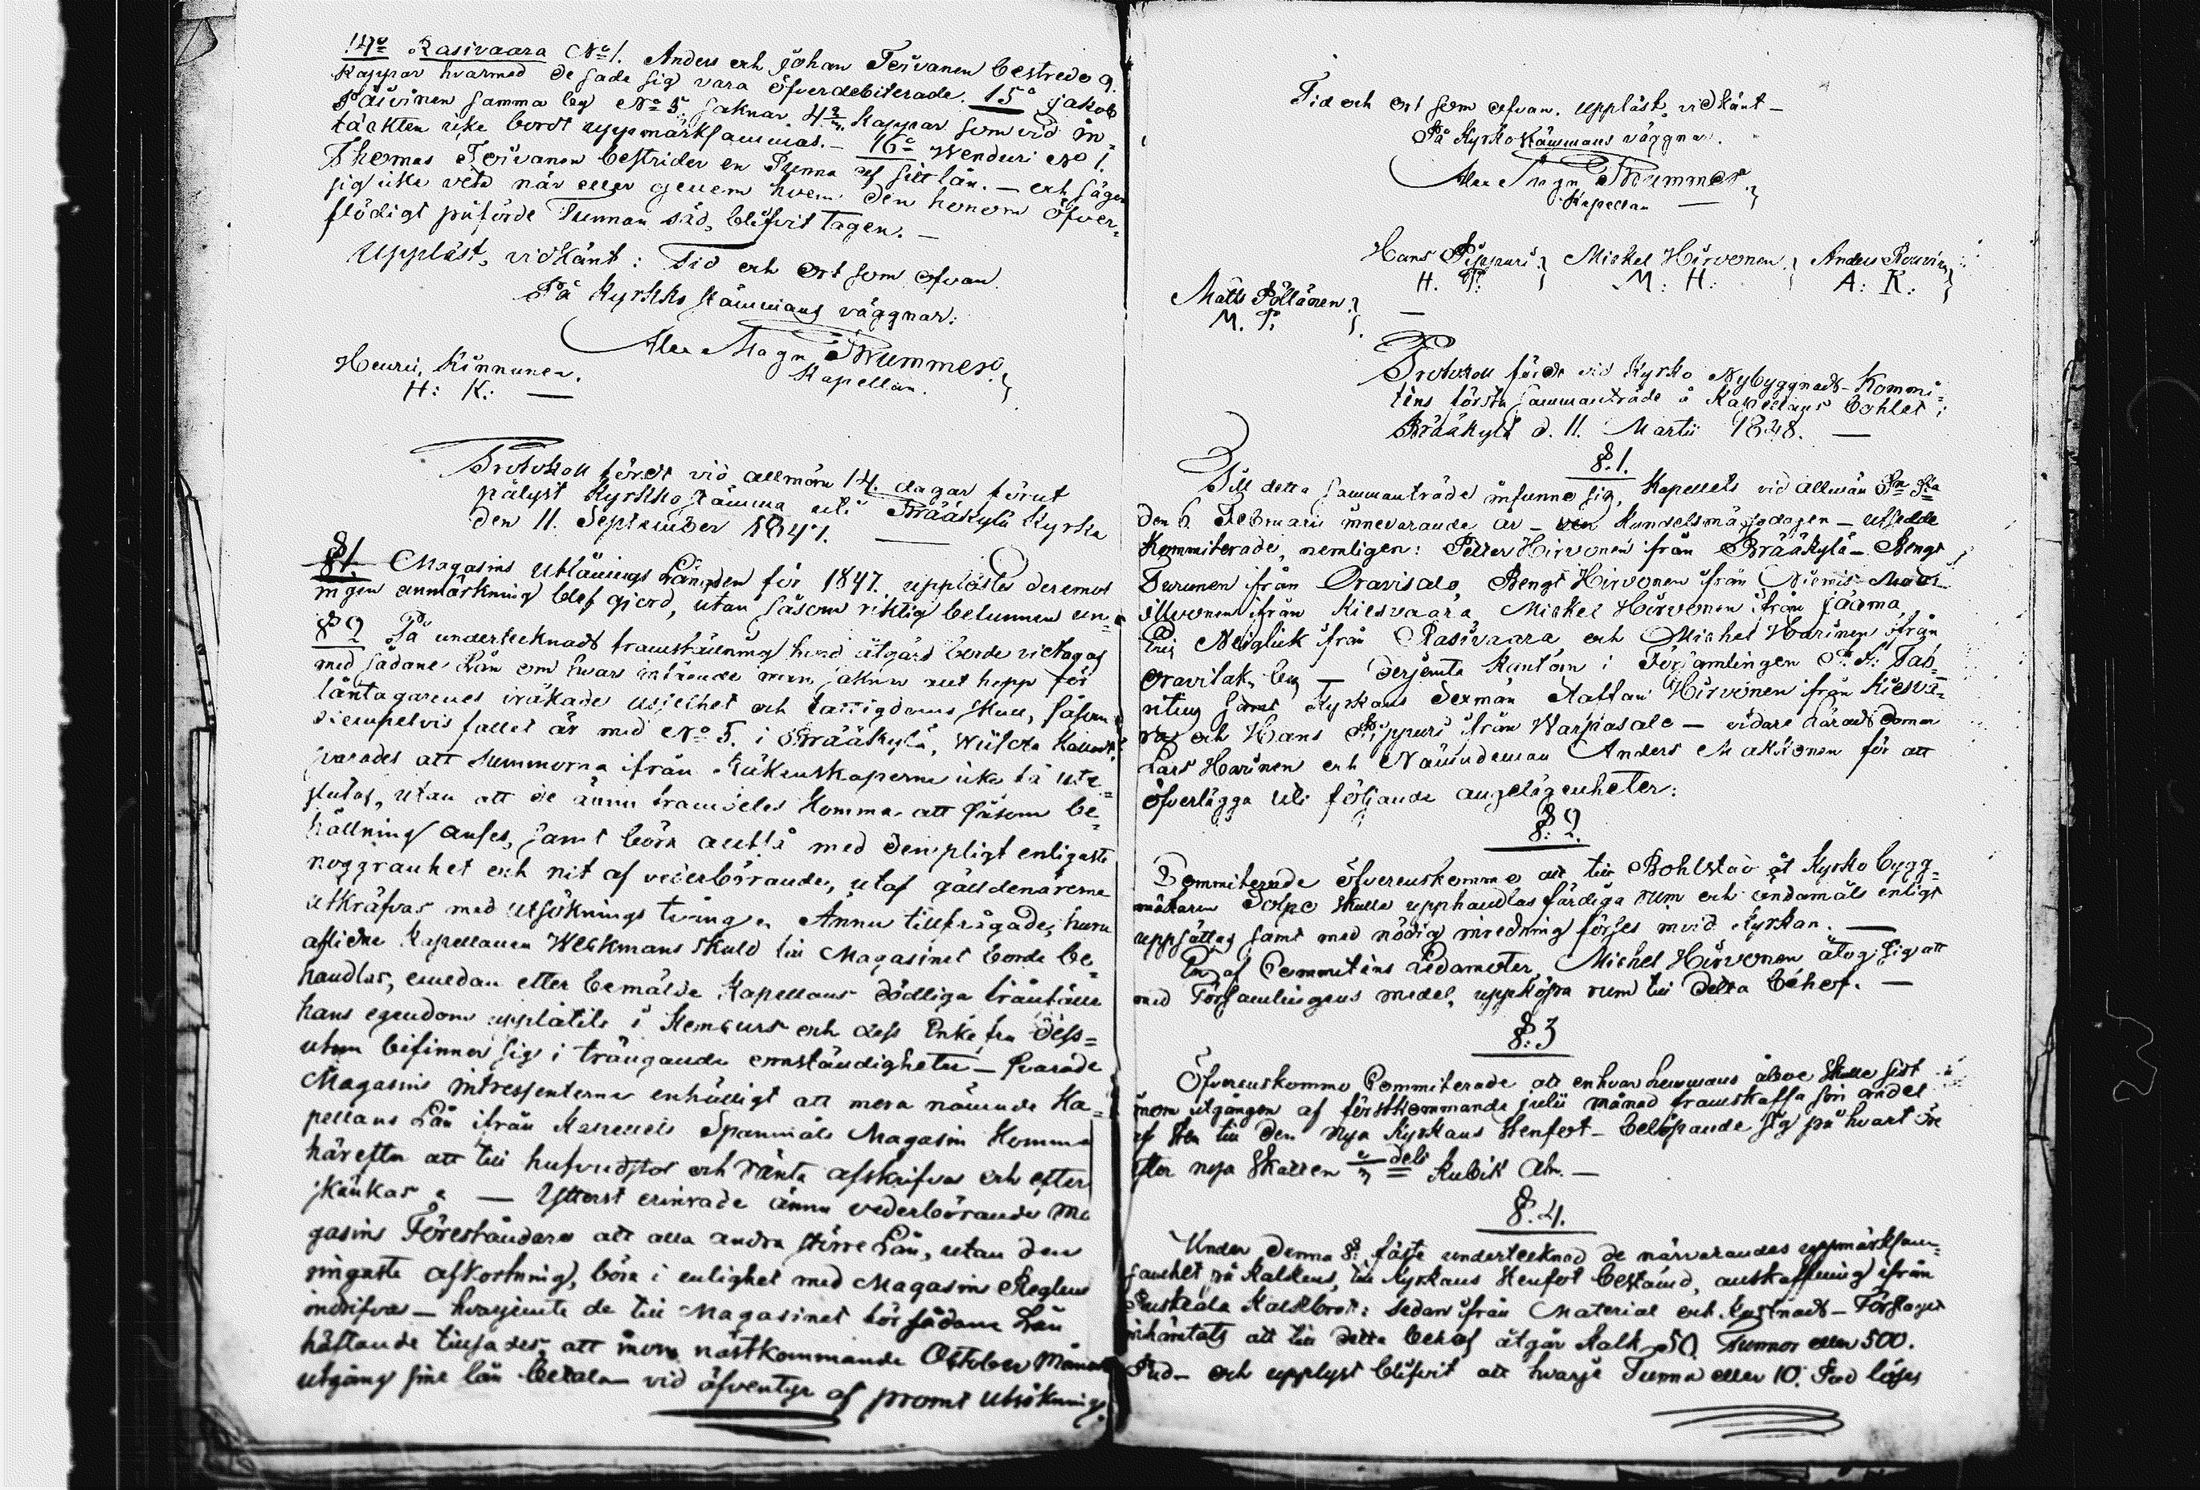 14o Rasivaara No 1. Anders och Johan Tervanen bestredo 9.
Kappar hvarmed de sade sig vara öfverdebiterade. 15o Jakob
Päivinen samma by No 5. saknar 4 2/3 kappar som vid in-
täckten icke bordt uppmärksammas. – 16o Wenduri No 1.
Thomas Tervanen bestrider en Tunna af sitt lån. – och säger
sig icke veta när eller genom hvem den honom öfver-
flödigt påförde Tunnan säd, blifvit tagen. –
Uppläst, vidkänt: Tid och Ort som ofvan.
På Kyrkko stämmans väggnar:
Alex Magn Trummer
Kapellan.
Henric Kinnunen.
H: K: —
Protokoll fördt vid allmän 14. dagar förut
pålyst Kyrkko stämma uti Bräåkylä Kyrka
den 11. September 1847. —
§ 1. Magasins Utlånings Längden för 1847. upplästes deremot
ingen anmärkning blef gjord, utan såsom riktig befunnen
§ 2 På undertecknads framställning hvad åtgärd borde vidtagas
med sådane Lån om hvars inflytande man saknar allt hopp för
låntagarenes iråkade uselhet och fattigdoms skull, såsom
exempelvis fallet är med No 5. i Bräåkylä,
svarades att summorna ifrån Räkenskaperne icke få ute-
slutas, utan att de ännu framdeles komma att såsom be-
hållning anses, samt böra alltså med den pligtenligaste
noggranhet och nit af vederbörande, utaf gäldenärerne
utkräfvas med utsöknings tvång. Ännu tillfrågade, huru
aflidne Kapellanen Weckmans skuld till Magasinet borde be-
handlas, emedan efter bemälde Kapellans dödliga frånfälle
hans egendom upplåtits i Konkurs och dess Enkefru dess-
utom befinner sig i trängande omständigheter – svarade
Magasins intressenterne enhälligt att mera nämnde Ka-
pellans Lån ifrån Kapellets Spanmåls Magasin komma
härefter att till hufvudstol och ränta afskrifvas och efter-
skänkas. — Ytterst erinrade ännu vederbörande Ma-
gasins Föreståndare att alla andra större Lån, utan den
ringaste afkortning, böra i enlighet med Magasins Reglem
indrifvas – hvarjemte de till Magasinet för sådane Lån
häftande tillsades, att inom nästkommande October Månads
utgång sine lån betala vid äfventyr af promt utsökning.
Tid och Ort som ofvan. Uppläst, vidkänt –
På Kyrko stämmans väggnar.
Alex Magn Trummer
Kapellan —
Hans Pippuri Mickel Hirvonen Anders
H. P. M: H: A: K:
Matts Pöllänen
M. P. —
Protokoll fördt vid Kyrko Nybyggnads-Kommi-
téns första sammanträde å Kapellans bohlet i
Bräåkylä d. 11. Martii 1848. —
§. 1.
Till detta sammanträde infunno sig, Kapellets vid allmän
den 6. Februarii innevarande år – Kyndelsmässodagen – utsedde
Kommiterade, nemligen: Petter Hirvonen från Bräåkylä – Bengt
Turunen ifrån Oravisalo, Bengt Hirvonen ifrån Niemis Matts
Silvonen ifrån Kiesvaara Mickel Hirvonen ifrån Jaama,
Eric Neiglick ifrån Rasivaara, och Michel Harinen ifrån
Oravilaks by – derjemte Kantorn i Församlingen
samt Kyrkans Sexmän Staffan Hirvonen ifrån Kiesva-
ra och Hans Pippuri ifrån Warpasalo – vidare Häradsdomn
Lars Harinen och Nämndeman Anders Makkonen för att
öfverlägga uti följande angelägenheter:
§: 2.
Commiterade öfverenskommo att till Bohlstad åt Kyrko bygg-
mästaren Tolpo skulle upphandlas färdiga rum och ändamåls enligt
uppsättas samt med nödig inredning förses invid Kyrkan. —
En af Committéns Ledamöter, Michel Hirvonen åtog sig att
med Församlingens medel, uppköpa rum till detta behof. —
§: 3
Öfverenskommo Commiterade att enhvar hemmans åboe skulle sist
inom utgången af förstkommande Julii månad framskaffa sin andel
af sten till den nya Kyrkans Stenfot – belöpande sig på hvart öre
efter nya skatten dels Kubik Aln. —
§. 4.
Under denna §: fäste undertecknad de närvarandes uppmärksam-
samhet på Kalkens, till Kyrkans Stenfot bestämd, anskaffning ifrån
Ruskeala Kalkbrott: sedan ifrån Material och Kostnads-Förslaget
inhämtats att till detta behof åtgår Kalk 50 Tunnor eller 500.
Pud – och upplyst blifvit att hvarje Tunna eller 10. Pud löses